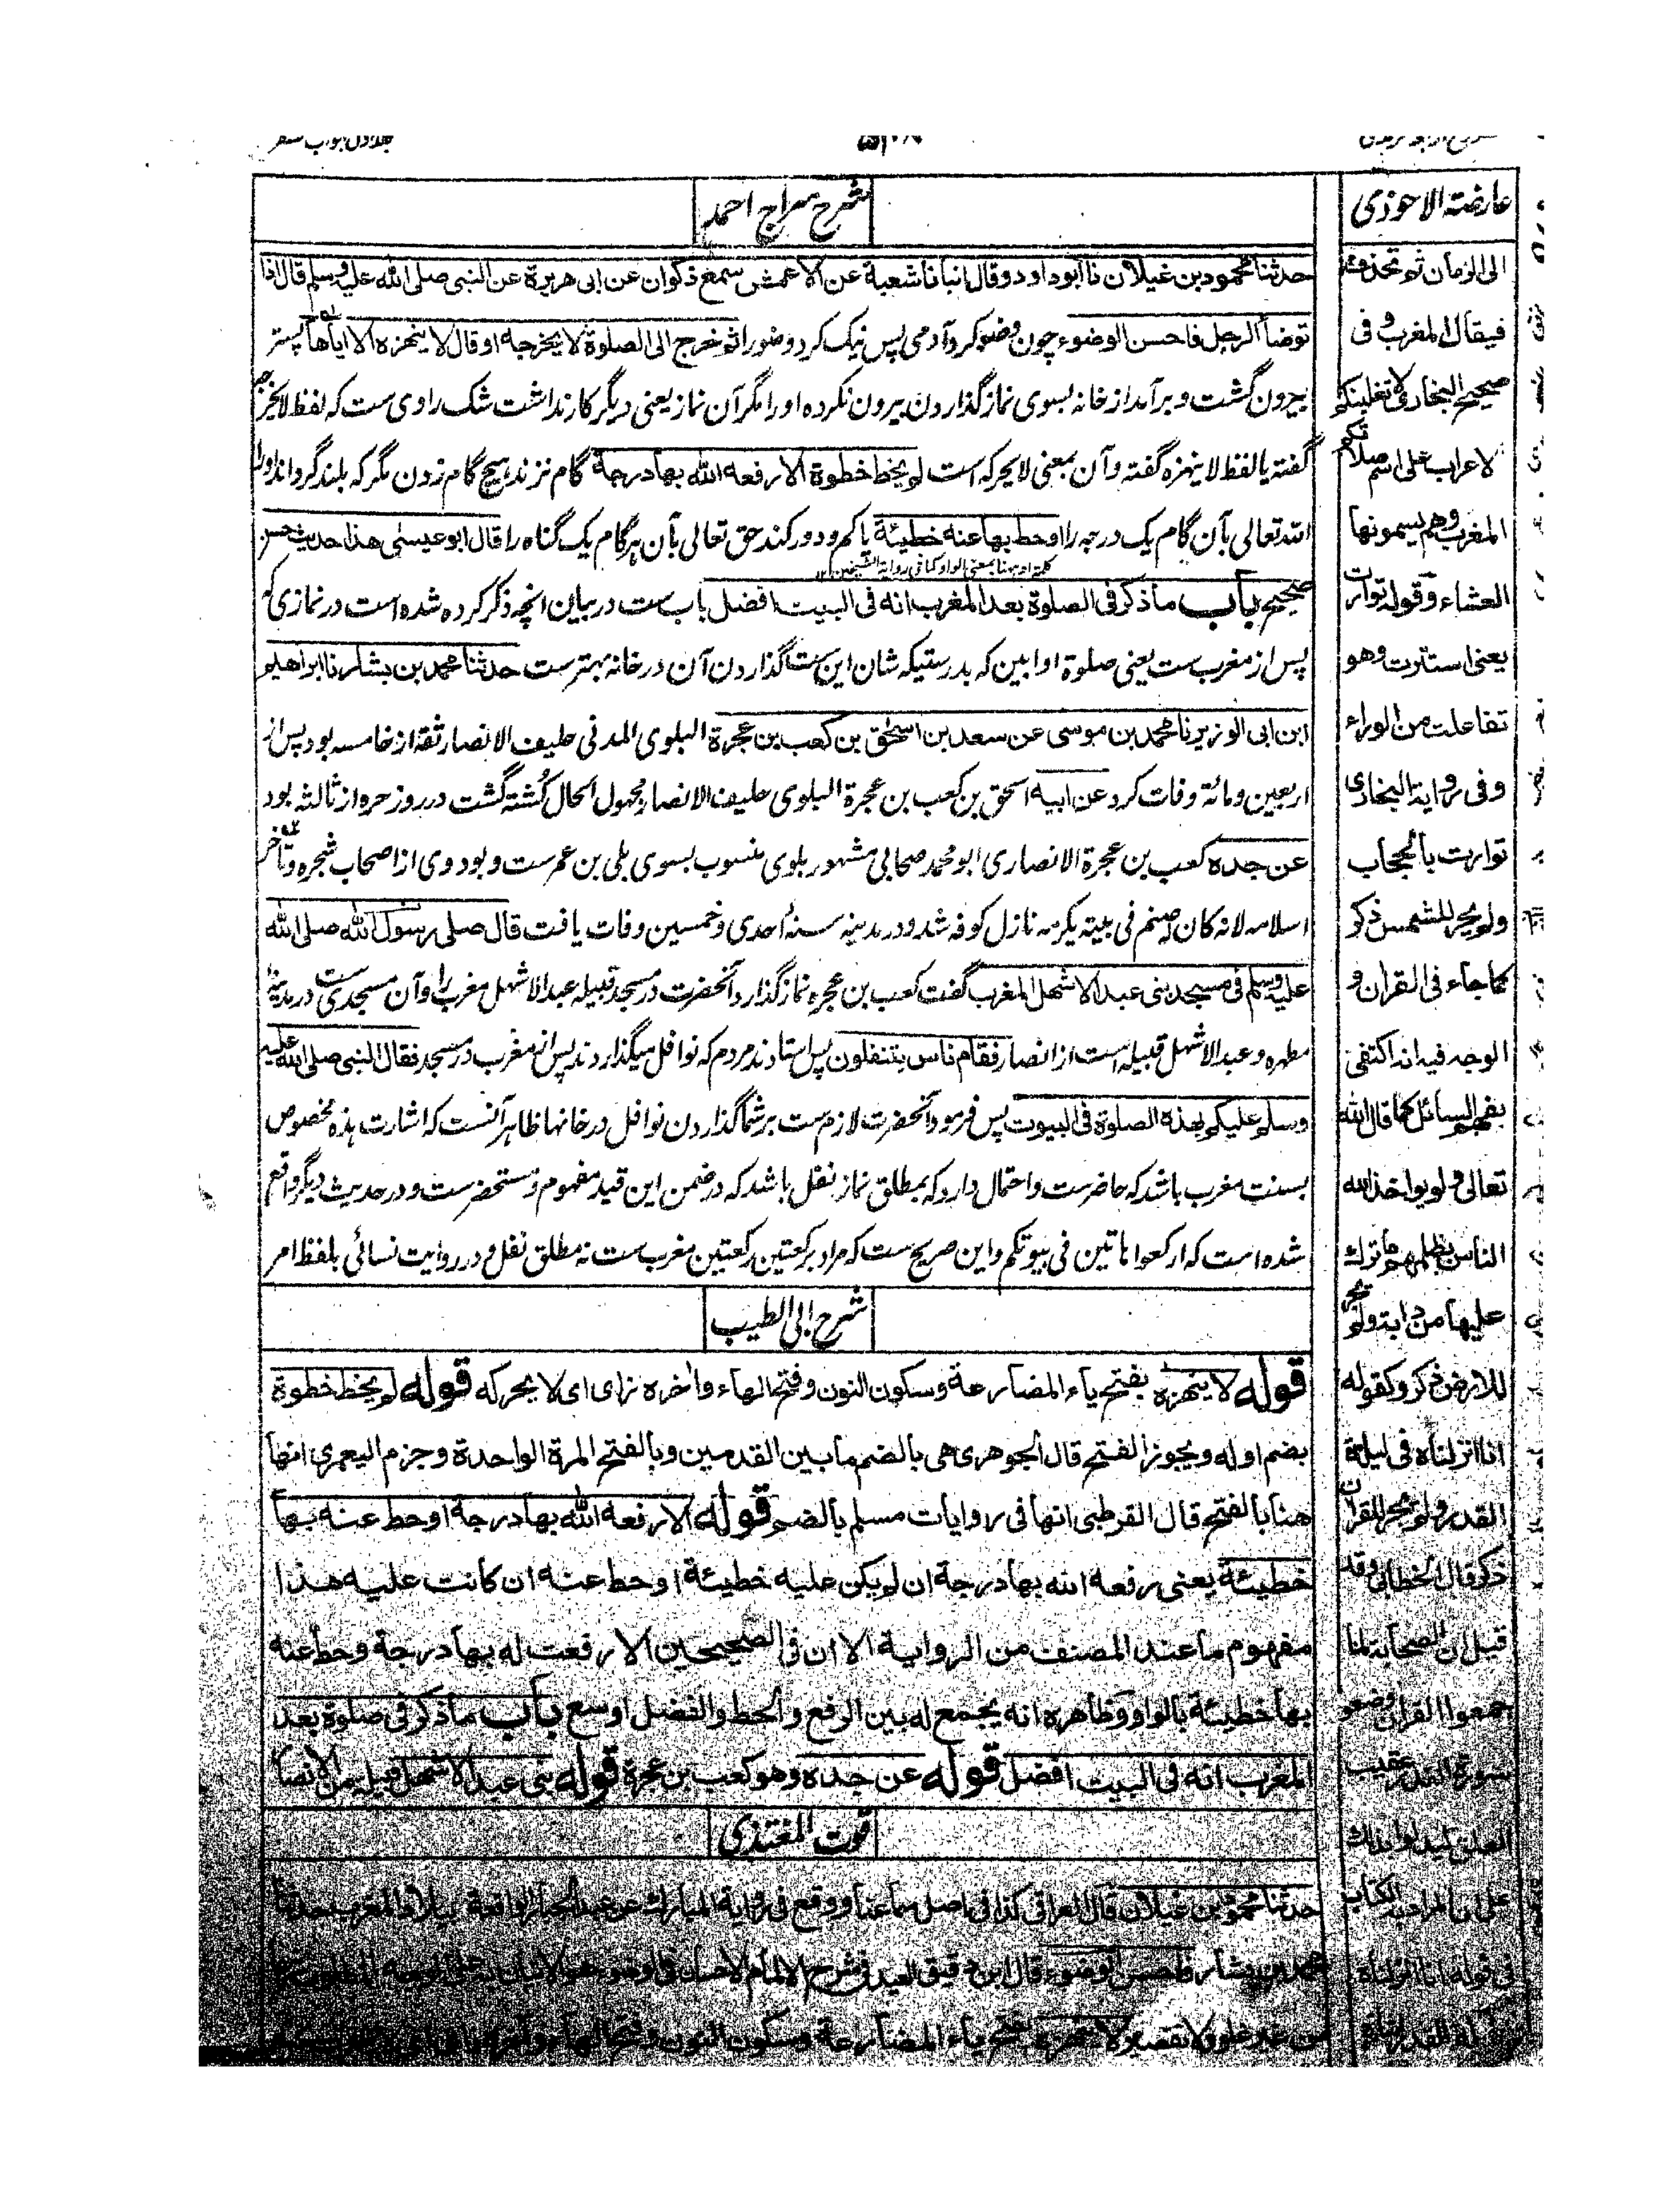 جلد اول ابواب سفر
شرح سراج احمد
حدثنا محمود بن غيلان نا ابو داود وقال انبانا شعبة عن الاعمش سمع ذكوان عن ابى هريرة عن النبى صلى الله عليه وسلم قال اذا
توضأ الرجل فاحسن الوضوء چون وضو کرد آدمی پس نیک کرد وضو را ثم خرج الى الصلوة لا يخرجه او قال لا ينهزه الا اياها پستر
بیرون گشت و برآمد از خانه بسوی نماز گذاردن بیرون نکرده او را مگر آن نماز یعنی دیگر کار نداشت شک راوی ست که لفظ لا یخرجه
گفته یا لفظ لا ینهزه گفته و آن بمعنی لا یحرکه است لم يخط خطوة الا رفعه الله بها درجة گام نزند هیچ گام زدن مگر که بلند گرداند او را
الله تعالی بآن گام یک درجه را او حط بها عنه خطيئة یا کم و دور کند حق تعالی بآن هر گام یک گناه را قال ابو عيسى هذا حديث حسن
کلمة او ههنا بمعنی الواو کما فی روایة الشیخین ۱۲
صحيح باب ما ذكر فى الصلوة بعد المغرب انه فى البيت افضل باب ست در بیان انچه ذکر کرده شده است در نمازی که
پس از مغرب ست یعنی صلوة اوابین که بدرستیکه شان این ست گذاردن آن در خانه بهتر ست حدثنا محمد بن بشار نا ابراهيم
ابن ابى الوزير نا محمد بن موسى عن سعد بن اسحق بن كعب بن عجرة البلوی المدنی حلیف الانصار ثقه از خامسه بود پس از
اربعین و مائة وفات کرد عن ابيه اسحق بن کعب بن عجرة البلوی حلیف الانصار مجهول الحال کشته گشت در روز حره از ثالثه بود
عن جده كعب بن عجرة الانصاری ابو محمد صحابی مشهور بلوی منسوب بسوی بلی بن عمر ست و بود وی از اصحاب شجره و تأخر
اسلامه لانه کان له صنم فی بیته یکرمه نازل کوفه شد و در مدینه سنه احدی و خمسین وفات یافت قال صلى رسول الله صلى الله
عليه وسلم فى مسجد بنى عبد الاشهل المغرب گفت کعب بن عجره نماز گذارد آنحضرت در مسجد قبیله عبد الاشهل مغرب را و آن مسجدی ست در مدینه
مطهره و عبد الاشهل قبیله است از انصار فقام ناس يتنفلون پس استادند مردم که نوافل میگذاردند پس از مغرب در مسجد فقال النبى صلى الله عليه
وسلم عليكم بهذه الصلوة فى البيوت پس فرمود آنحضرت لازم ست بر شما گذاردن نوافل در خانها ظاهر آنست که اشارت هذه مخصوص
بسنت مغرب باشد که حاضر ست و احتمال دارد که بمطلق نماز نفل باشد که در ضمن این قید مفهوم و مستحضر ست و در حدیث دیگر واقع
شده است که ارکعوا هاتین فی بیوتکم و این صریح ست که مراد برکعتین رکعتین مغرب ست نه مطلق نفل و در روایت نسائی بلفظ امر
شرح ابی الطیب
قوله لا ينهزه بفتح ياء المضارعة وسكون النون وفتح الهاء واخره زاى اى لا يحركه قوله لم يخط خطوة
بضم اوله ويجوز الفتح قال الجوهرى هى بالضم ما بين القدمين وبالفتح المرة الواحدة وجزم اليعمرى انها
هنا بالفتح قال القرطبى انها فى روايات مسلم بالضم قوله الا رفعه الله بها درجة او حط عنه بها
خطيئة يعنى رفعه الله بها درجة ان لم يكن عليه خطيئة او حط عنه ان كانت عليه هذا
مفهوم ما عند المصنف من الرواية الا ان فى الصحيحين الا رفعت له بها درجة وحط عنه
بها خطيئة بالواو وظاهره انه يجمع له بين الرفع والحط والفضل اوسع باب ما ذكر فى صلوة بعد
المغرب انه فى البيت افضل قوله عن جده وهو كعب بن عجرة قوله بنى عبد الاشهل قبيلة من الانصار
قوت المغتذی
حدثنا محمود بن غيلان قال العراقى كذا فى اصل سماعنا ووقع فى رواية المبارك عن عبد الجبار
محمد بن بشار فاحسن الوضوء قال ابن دقيق العيد فى شرح الالمام الاحسان فى الوضوء
من غير غلو ولا تقصير لا ينهزه بفتح ياء المضارعة وسكون النون وفتح الهاء
عارضة الاحوذی
الى الزمان ثم تحذف
فيقال المغرب وفى
صحيح البخارى لا تغلبنكم
الاعراب على اسم صلاتكم
المغرب وهم يسمونها
العشاء وقوله توارت
يعنى استترت وهو
تفاعلت من الوراء
وفى رواية البخارى
توارت بالحجاب
ولم يجر للشمس ذكر
كما جاء فى القران و
الوجه فيه انه اكتفى
بفهم السائل كما قال الله
تعالى ولو يواخذ الله
الناس بظلمهم ما ترك
عليها من دابة ولم يجر
للارض ذكر وكقوله
انا انزلناه فى ليلة
القدر ولم يجر للقران
ذكر قال الخطابى وقد
قيل ان الصحابة لما
جمعوا القران وضعوا
سورة القدر عقيب
العلق